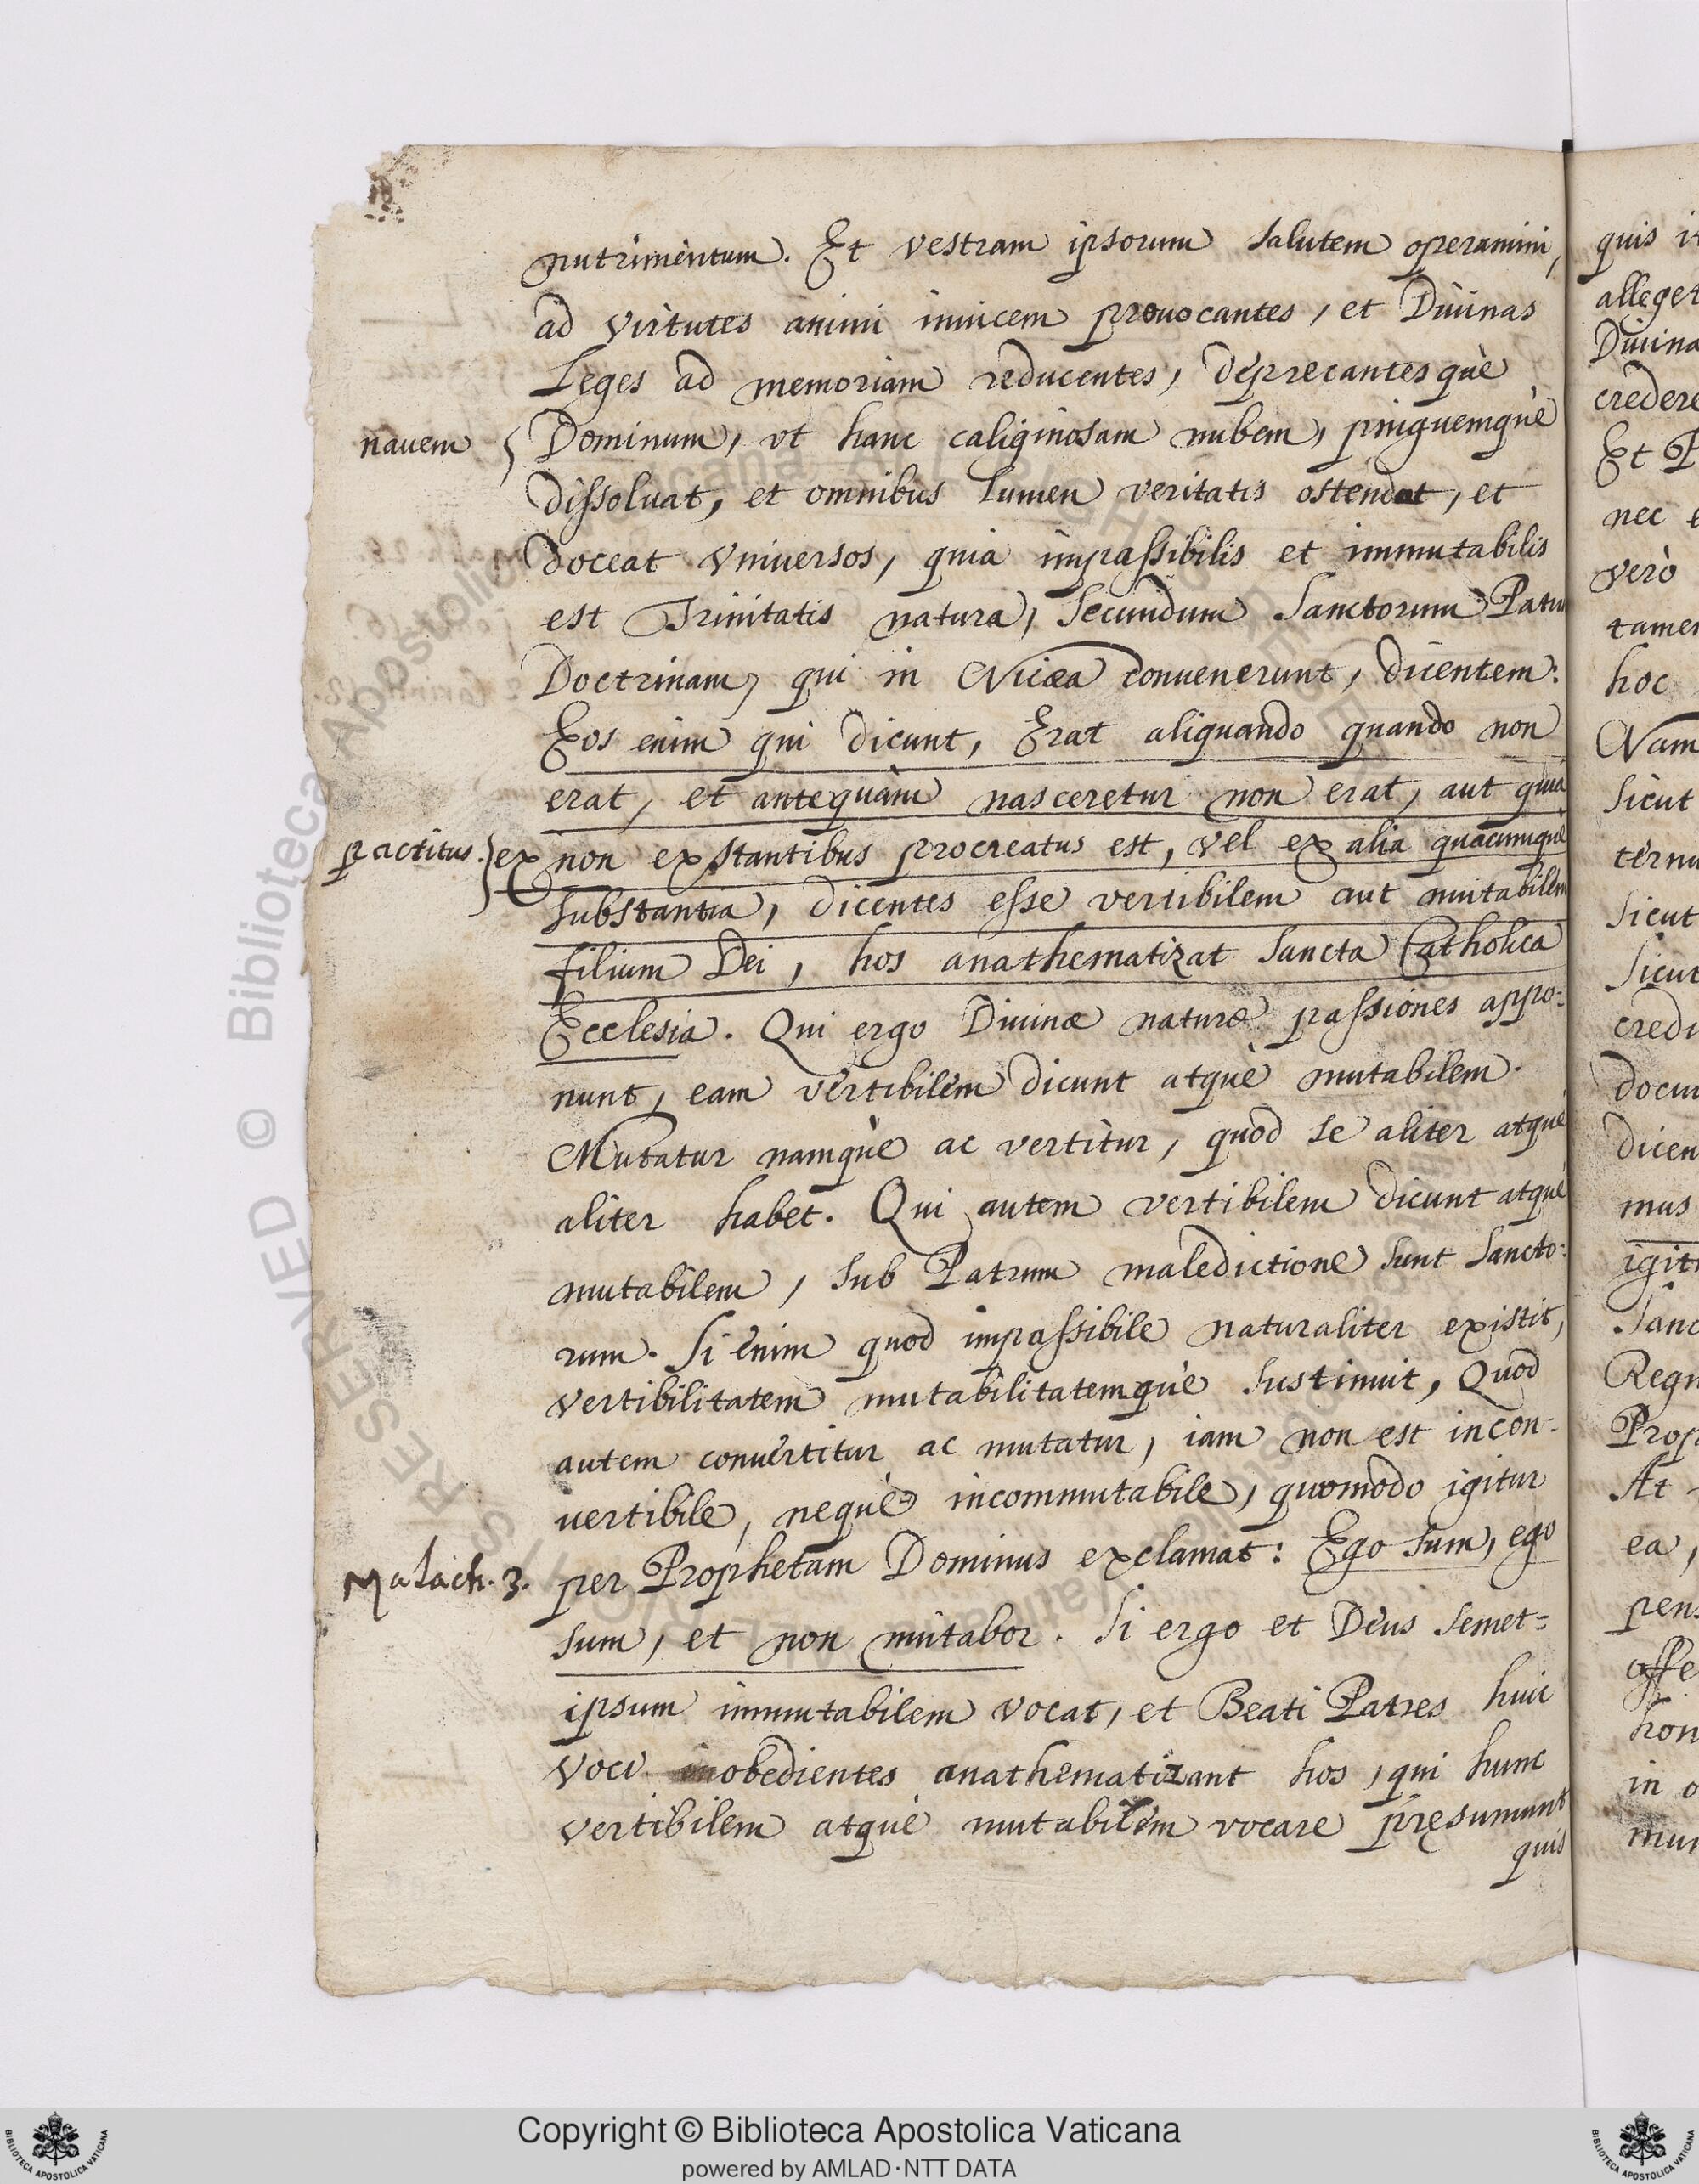 nutrimentum. Et vestram ipsorum salutem operamini,
ad virtutes animi inuicem prouocantes, et Diuinas
Leges ad memoriam reducentes, deprecantesquè
nauem
Dominum, vt hanc caliginosam nubem, pinguemquè
dissoluat, et omnibus lumen veritatis ostendat, et
doceat vniuersos, quia impassibilis et immutabilis
est Trinitatis natura, secundum Sanctorum Patru
Doctrinam, qui in Nicæa conuenerunt, dicentem:
Eos enim qui dicunt, Erat aliquando quando non
erat, et antequàm nasceretur non erat, aut quia
practitus.
ex non exstantibus procreatus est, vel ex alia quacumquè
substantia, dicentes esse vertibilem aut mutabilem
filium Dei, hos anathematizat Sancta Catholica
Ecclesia. Qui ergo Diuinæ naturæ passiones appo=
nunt, eam vertibilem dicunt atquè mutabilem.
Mutatur namquè ac vertitur, quod se aliter atquè
aliter habet. Qui autem vertibilem dicunt atquè
mutabilem, sub Patrum maledictione sunt Sancto=
rum. Si enim quod impassibile naturaliter existit,
vertibilitatem mutabilitatemquè sustinuit, Quod
autem conuertitur ac mutatur, iam non est incon=
uertibile, nequè incommutabile, quomodo igitur
Malach. 3.
per Prophetam Dominus exclamat: Ego sum, ego
sum, et non mutabor. Si ergo et Deus semet=
ipsum immutabilem vocat, et Beati Patres huic
voci inobedientes anathematizant hos, qui hunc
vertibilem atquè mutabilem vocare pręsumunt
quis
quis
alleget
Diuina
credere
Et P
nec
verò
tamen
hoc
Nam
sicut
sicut
dicen
mus
Regn
Prop
At
ea,
in o
Copyright © Biblioteca Apostolica Vaticana
powered by AMLAD·NTT DATA